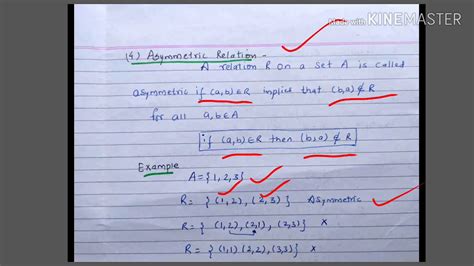 Made with KINEMASTER
(4) Asymmetric Relation -
A relation R on a set A is called
asymmetric if (a,b)∈R implied that (b,a)∉R
for all a,b∈A
if (a,b)∈R then (b,a)∉R
Example
A={1,2,3}
R= {(1,2), (2,3)} Asymmetric
R= {(1,2), (2,1), (2,3)} ×
R= {(1,1) (2,2), (3,3)} ×